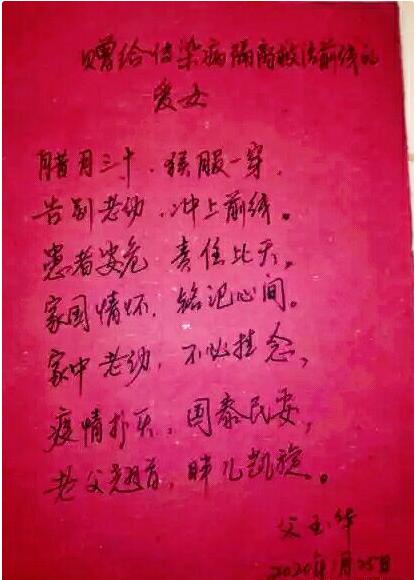 赠给传染病隔离救治前线的
爱女
腊月三十、猴服一穿，
告别老幼、冲上前线。
患者安危 责任比天。
家国情怀、铭记心间。
家中老幼，不必挂念，
疫情扑灭、国泰民安，
老父翘首，盼儿凯旋。
父玉华
2020年1月25日